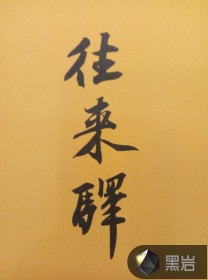 往来驛
黑岩